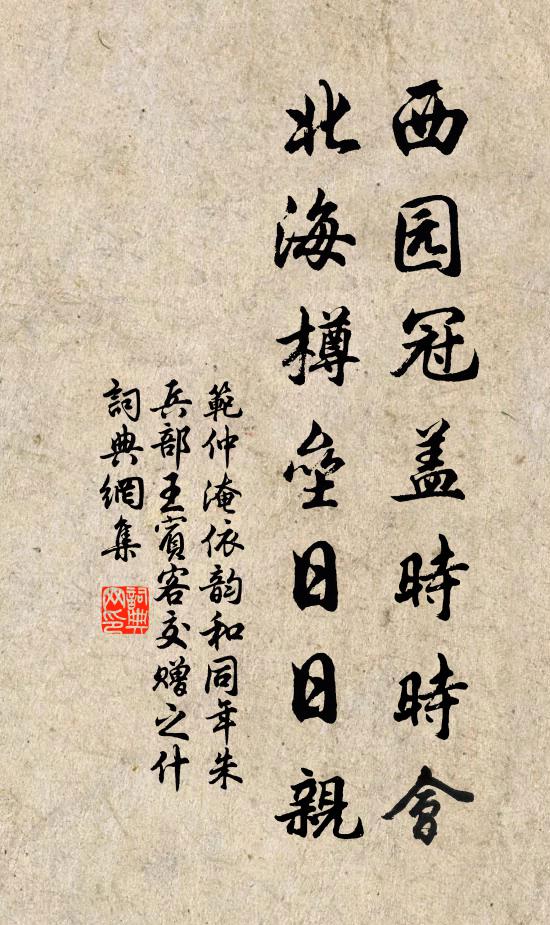 西园冠盖時時會
北海樽垒日日親
範仲淹依韵和同年朱
兵部王賓客交赠之什
詞典網集
詞典网印